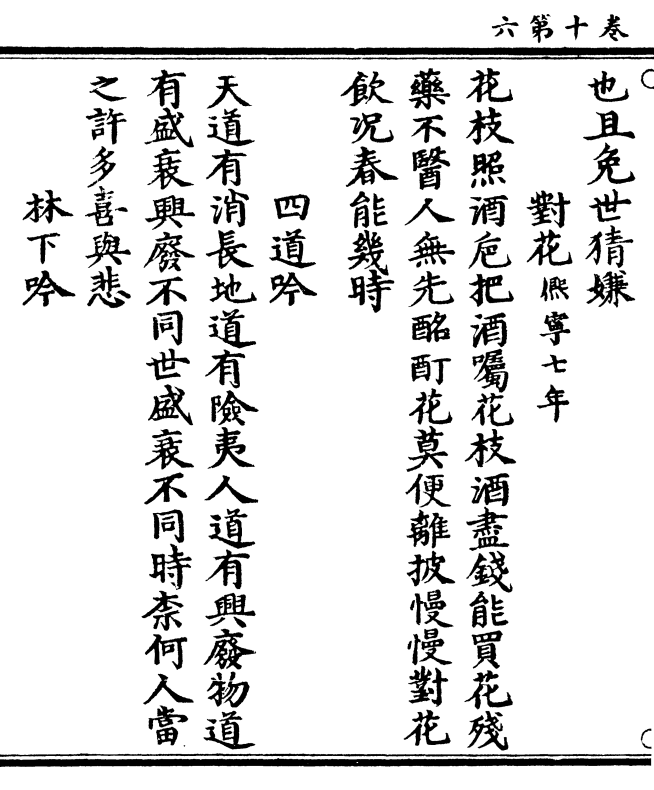 卷十第六
也且免世猜嫌
對花熈寧七年
花枝照酒卮把酒囑花枝酒盡錢能買花殘
藥不醫人無先酩酊花莫便離披慢慢對花
飲况春能幾時
四道吟
天道有消長地道有險夷人道有興廢物道
有盛衰興廢不同世盛衰不同時柰何人當
之許多喜與悲
林下吟